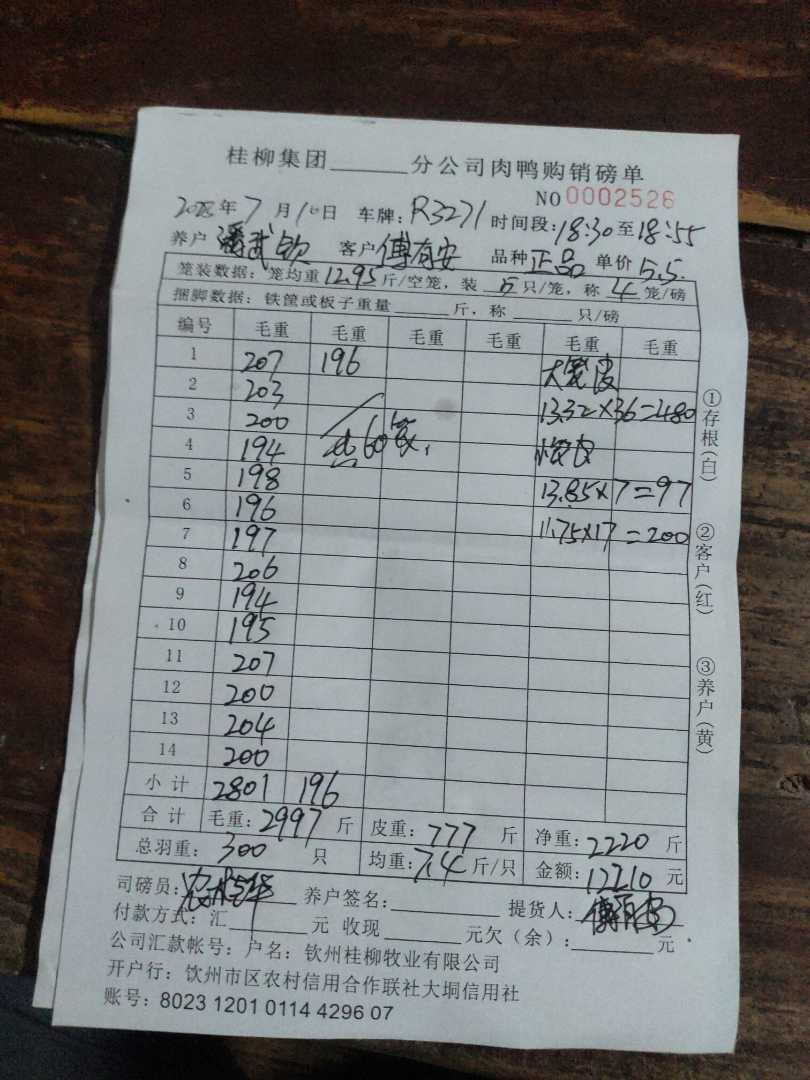 桂柳集团______分公司肉鸭购销磅单
NO 0002526
2023年7月10日 车牌:R3271 时间段:18:30至18:55
养户 潘武钦 客户 傅有安 品种 正品 单价 5.5.
笼装数据:笼均重 12.95 斤/空笼,装 5 只/笼,称 4 笼/磅
捆脚数据:铁筐或板子重量______斤,称______只/磅
编号 毛重 毛重 毛重 毛重 毛重 毛重
1 207 196 大笼皮
2 203 13.32×36=480
3 200
4 194 共60笼.
5 198 13.85×7=97
6 196 11.75×17=200
7 197
8 206
9 194
10 195
11 207
12 200
13 204
14 200
小计 2801 196
合计 毛重:2997斤 皮重:777斤 净重:2220斤
总羽重:300只 均重:7.4斤/只 金额:12210元
司磅员: 养户签名:______ 提货人:傅有安
付款方式:汇______元 收现______元欠(余):______元
公司汇款帐号:户名:钦州桂柳牧业有限公司
开户行:钦州市区农村信用合作联社大垌信用社
账号:8023 1201 0114 4296 07
①存根(白)
②客户(红)
③养户(黄)